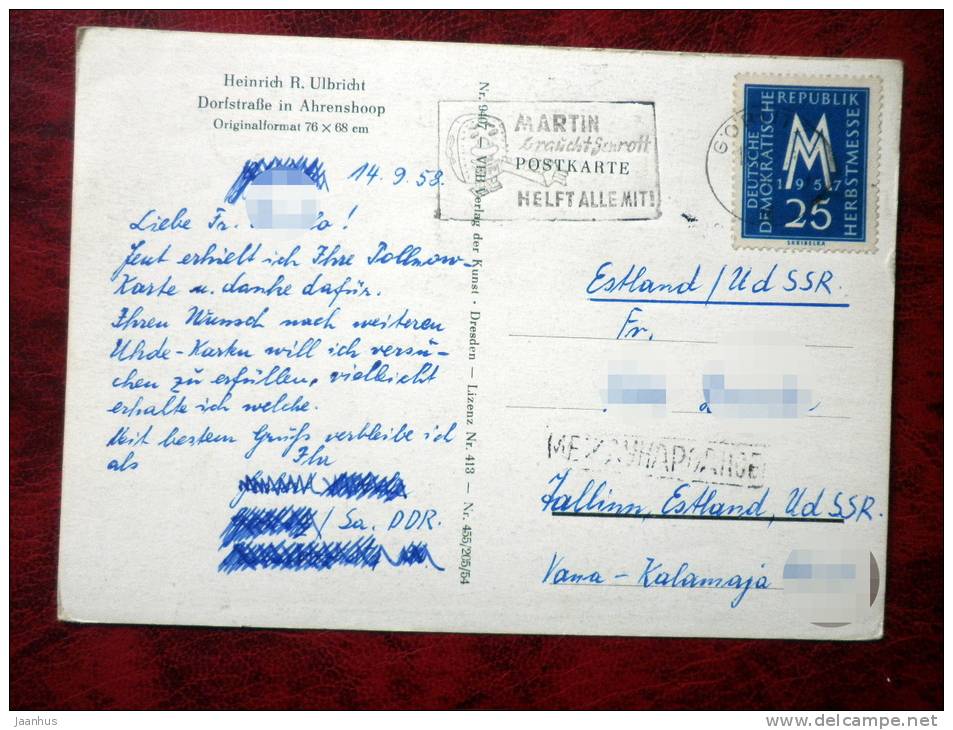 Heinrich R. Ulbricht
Dorfstraße in Ahrenshoop
Originalformat 76 × 68 cm
14.9.58.
Liebe Fr.
Jetzt erhielt ich Ihre Pollnow-
Karte u. danke dafür.
Ihren Wunsch nach weiteren
Uhde-Karten will ich versu-
chen zu erfüllen, vielleicht
erhalte ich welche.
Mit bestem Gruß verbleibe ich
als Ihr
/ Sa. DDR.
VEB Verlag der Kunst · Dresden — Lizenz Nr. 413 — Nr. 455/205/54
MARTIN
braucht Schrott
POSTKARTE
HELFT ALLE MIT!
DEUTSCHE
DEMOKRATISCHE
REPUBLIK
HERBSTMESSE
MM
1957
25
Estland / Ud SSR.
Fr.
МЕЖДУНАРОДНОЕ
Tallinn, Estland, Ud SSR.
Vana - Kalamaja
Jaanhus
www.delcampe.net